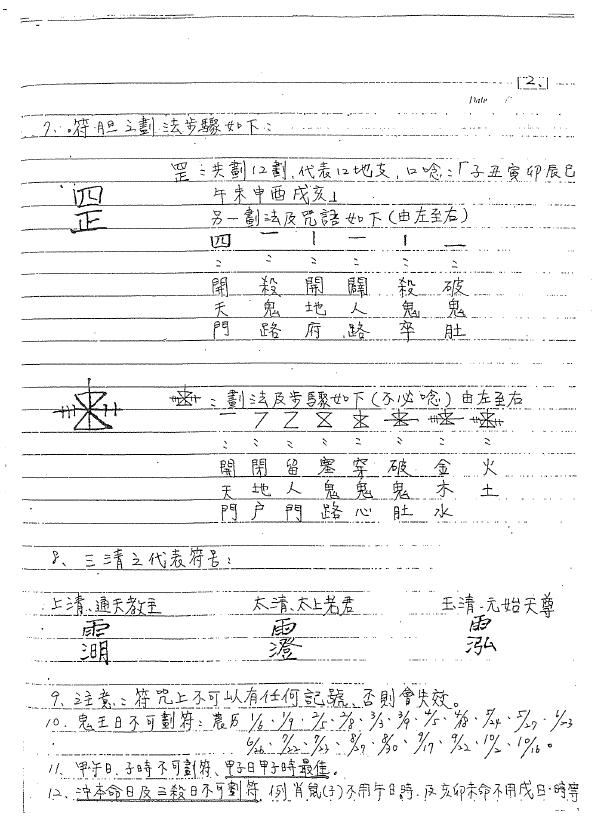 2.
Date
7、符胆之劃法步驟如下：
罡：共劃12劃、代表12地支、口唸：「子丑寅卯辰巳
午未申酉戌亥」
另一劃法及咒語如下(由左至右)
四 一 丨 一 丨 一
： ： ： ： ： ：
開 殺 開 闢 殺 破
天 鬼 地 人 鬼 鬼
門 路 府 路 卒 肚
：劃法及步驟如下(不必唸)由左至右
： ： ： ： ： ： ： ：
開 閉 留 塞 穿 破 金 火
天 地 人 鬼 鬼 鬼 木 土
門 户 門 路 心 肚 水
8、三清之代表符号：
上清、通天教主 太清、太上老君 玉清、元始天尊
9、注意：符咒上不可以有任何記號、否則會失效。
10、鬼王日不可劃符：農历 1/6、1/9、2/5、2/8、3/3、3/9、4/5、4/18、5/24、5/27、6/23
6/26、7/22、7/23、8/27、8/30、9/17、9/22、10/2、10/16。
11、甲午日、子時不可劃符、甲子日甲子時最佳。
12、冲本命日及三殺日不可劃符、例肖鼠(子)不用午日時、及亥卯未命不用戌日、時等